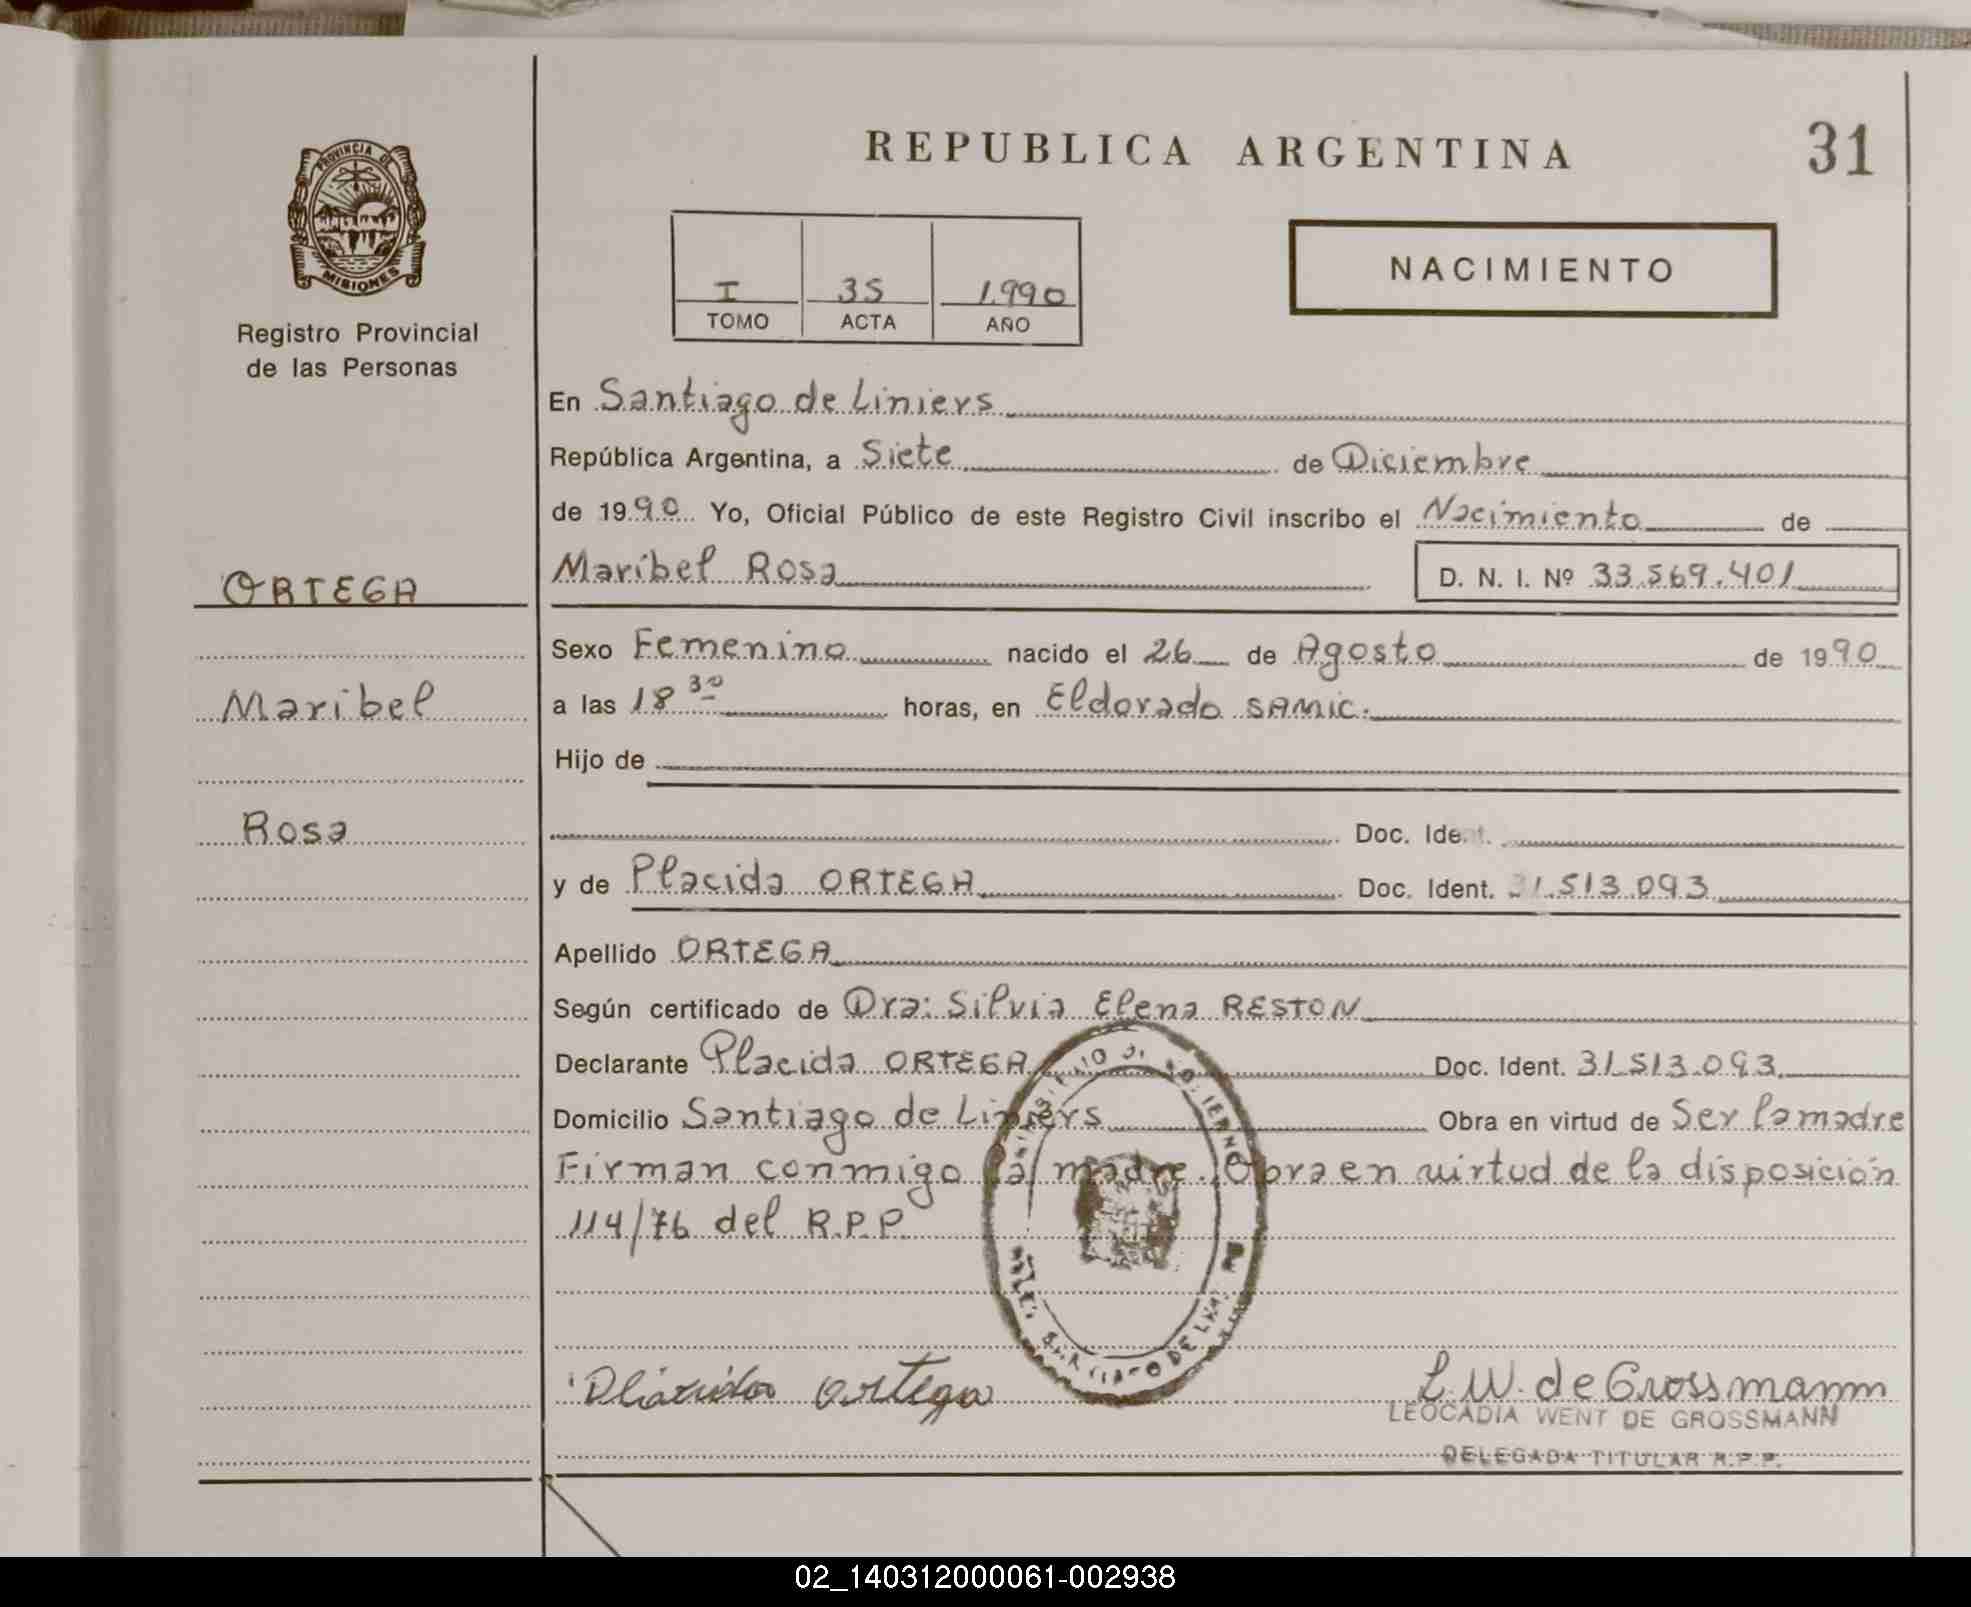 REPUBLICA ARGENTINA
31
PROVINCIA DE
MISIONES
Registro Provincial
de las Personas
I 35 1.990
TOMO ACTA AÑO
NACIMIENTO
En Santiago de Liniers
República Argentina, a Siete de Diciembre
de 1990 Yo, Oficial Público de este Registro Civil inscribo el Nacimiento de
Maribel Rosa D. N. I. Nº 33.569.401
ORTEGA
Maribel
Rosa
Sexo Femenino nacido el 26 de Agosto de 1990
a las 18 30 horas, en Eldorado SAMIC.
Hijo de
Doc. Ident.
y de Placida ORTEGA Doc. Ident. 31.513.093
Apellido ORTEGA
Según certificado de Dra: Silvia Elena RESTON
Declarante Placida ORTEGA Doc. Ident. 31.513.093
Domicilio Santiago de Liniers Obra en virtud de Ser la madre
Firman conmigo la madre. Obra en virtud de la disposición
114/76 del R.P.P.
Ortega
L. W. de Grossmann
LEOCADIA WENT DE GROSSMANN
DELEGADA TITULAR R.P.P.
02_140312000061-002938